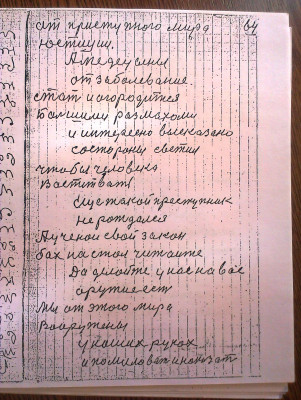 от приступного мира 64
юстиции.
А медецины
от заболевание.
стат и огородится
Большими размахоми
и интересно высказано
состороны света
чтобы человека
Воспитвать
преступник
не рождался
А ученой свой закон
бах на стол читаите
Да делойте у нас на вас
оружие ест
Мы от этого мира
Вооружены
у наших руках
и помиловат и наказат